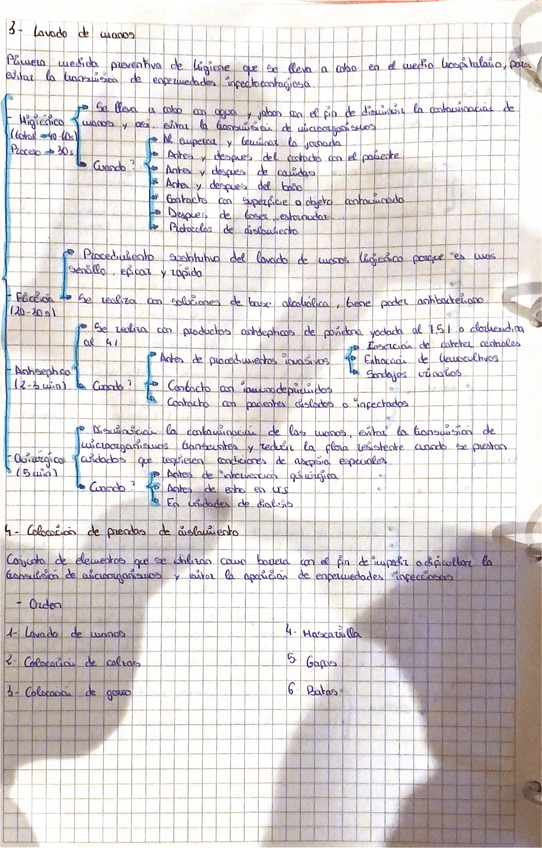 3- Lavado de manos
Primera medida preventiva de higiene que se lleva a cabo en el medio hospitalario, para
evitar la transmisión de enfermedades infectocontagiosa
- Higiénico
(total → 40-60s)
Proceso → 30s
→ Se lleva a cabo con agua y jabon con el fin de disminuir la contaminacion de
manos y así evitar la transmisión de microorganismos
→ Cuando?
→ Al empezar y terminar la jornada
→ Antes y despues del contacto con el paciente
→ Antes y despues de comidas
→ Antes y despues del baño
→ Contacto con superficie o objeto contaminado
→ Despues de toser, estornudar
→ Protocolos de aislamiento
- Fricción
(20-30s)
→ Procedimiento sustitutivo del lavado de manos higiénico porque es mas
sencillo, eficaz y rápido
→ Se realiza con soluciones de base alcohólica, tiene poder antibacteriano
- Antiseptico
(2-3 min)
→ Se realiza con productos antisepticos de povidona yodada al 7,5% o clorhexidina
al 4%
→ Cuando?
→ Antes de procedimientos invasivos
→ Inserción de cateter centrales
→ Extracción de hemocultivos
→ Sondajes urinarios
→ Contacto con inmunodeprimidos
→ Contacto con pacientes aislados o infectados
- Quirúrgico
(5 min)
→ Disminución la contaminación de las manos, evitar la transmisión de
microorganismos transeuntes y reducir la flora residente cuando se prestan
cuidados que requieren condiciones de asepsia especiales
→ Cuando?
→ Antes de intervención quirúrgica
→ Antes de entro en UCS
→ En unidades de dialisis
4- Colocación de prendas de aislamiento
Conjunto de elementos que se utilizan como barrera con el fin de impedir o dificultar la
transmisión de microorganismos y evitar la aparición de enfermedades infecciosas
- Orden
1- Lavado de manos
2- Colocación de calzas
3- Colocación de gorro
4- Mascarilla
5 Gafas
6 Batas